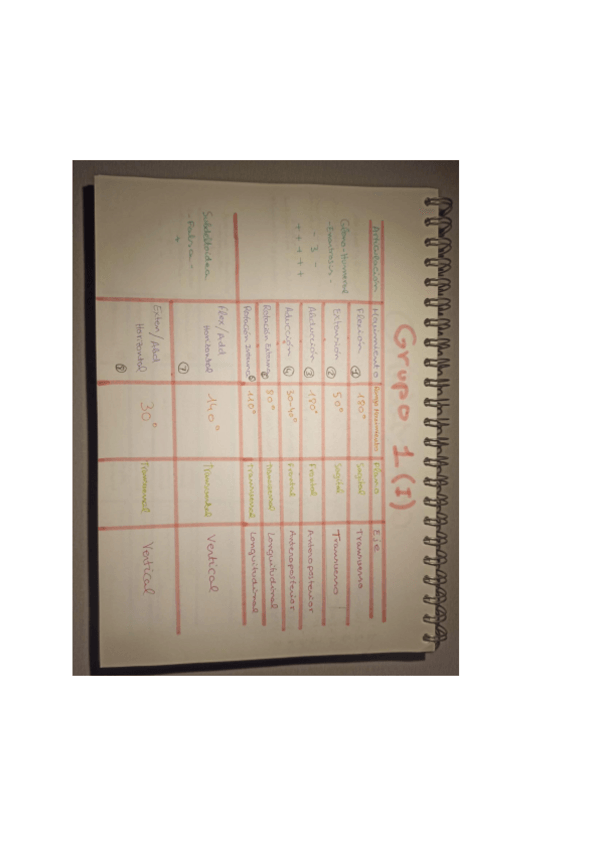 Grupo 1 (I)
Articulación Movimiento Rango Movimiento Plano Eje
Gleno-Humeral
-Enartrosis-
- 3 -
+++++
Flexión ① 180° Sagital Transverso
Extensión ② 50° Sagital Transverso
Abducción ③ 180° Frontal Anteroposterior
Aducción ④ 30-40° Frontal Anteroposterior
Rotación Externa 80° Transversal Longuitudinal
Rotación Interna 110° Transversal Longuitudinal
Subdeltoidea
- Falsa -
+
Flex/Add
Horizontal
⑦ 140° Transversal Vertical
Exten/Abd
Horizontal
⑧ 30° Transversal Vertical